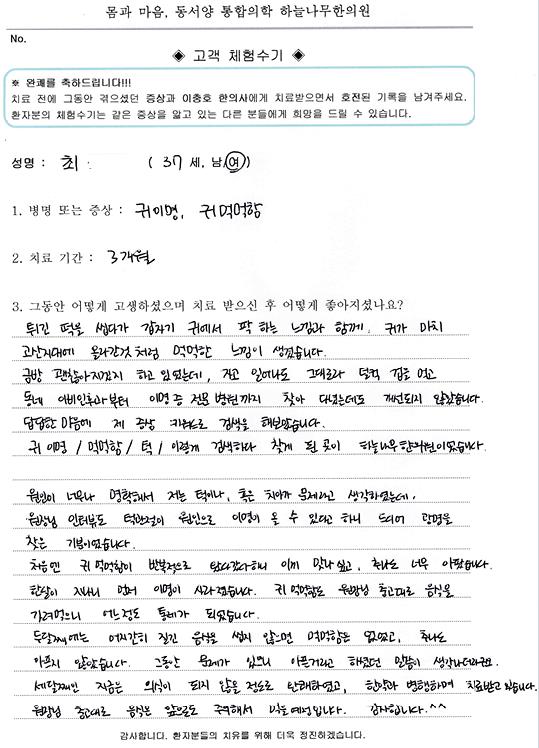 몸과 마음, 동서양 통합의학 하늘나무한의원
No.
◈ 고객 체험수기 ◈
※ 완쾌를 축하드립니다!!!
치료 전에 그동안 겪으셨던 증상과 이충호 한의사에게 치료받으면서 호전된 기록을 남겨주세요.
환자분의 체험수기는 같은 증상을 앓고 있는 다른 분들에게 희망을 드릴 수 있습니다.
성명 : 최 ( 37 세, 남, 여)
1. 병명 또는 증상 : 귀이명, 귀먹먹함
2. 치료 기간 : 3개월
3. 그동안 어떻게 고생하셨으며 치료 받으신 후 어떻게 좋아지셨나요?
튀긴 떡을 씹다가 갑자기 귀에서 딱 하는 느낌과 함께, 귀가 마치
고산지대에 올라간것처럼 먹먹한 느낌이 생겼습니다.
금방 괜찮아지겠지 하고 있었는데, 자고 일어나도 그대로라 덜컥 겁을 먹고
동네 이비인후과부터 이명 전문 병원까지 찾아 다녔는데도 개선되지 않았습니다.
답답한 마음에 제 증상 키워드로 검색을 해보았습니다.
귀 이명 / 먹먹함 / 턱 / 이렇게 검색하다 찾게 된 곳이 하늘나무한의원이었습니다.
원인이 너무나 명확해서 저는 턱이나, 혹은 치아가 문제라고 생각하였는데,
원장님 인터뷰도 턱관절이 원인으로 이명이 올 수 있다고 하니 드디어 광명을
찾은 기분이었습니다.
처음엔 귀 먹먹함이 반복적으로 왔다갔다하니 이게 맞나 싶고, 침도 너무 아팠습니다.
한달이 지나니 먼저 이명이 사라졌습니다. 귀 먹먹함도 원장님 충고대로 음식을
가려먹으니 어느정도 통제가 되었습니다.
두달째에는 어지간히 질긴 음식을 씹지 않으면 먹먹함은 없었고, 침도
아프지 않았습니다. 그동안 문제가 있으니 아픈거라고 하셨던 말씀이 생각나더라구요.
세달째인 지금은 의식이 되지 않을 정도로 완쾌하였고, 한약과 병행하며 치료받고 있습니다.
원장님 충고대로 음식은 앞으로도 주의해서 먹을 예정입니다. 감사합니다.^^
감사합니다. 환자분들의 치유를 위해 더욱 정진하겠습니다.